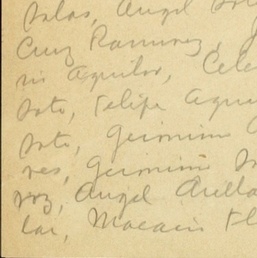 Salas, Angel
Cruz Ramirez, J
ris Aguilar, Cele
Soto, Felipe Agui
Soto, Geronimo
res, Geronimo
roz, Angel Arella
lar, Macario Fl